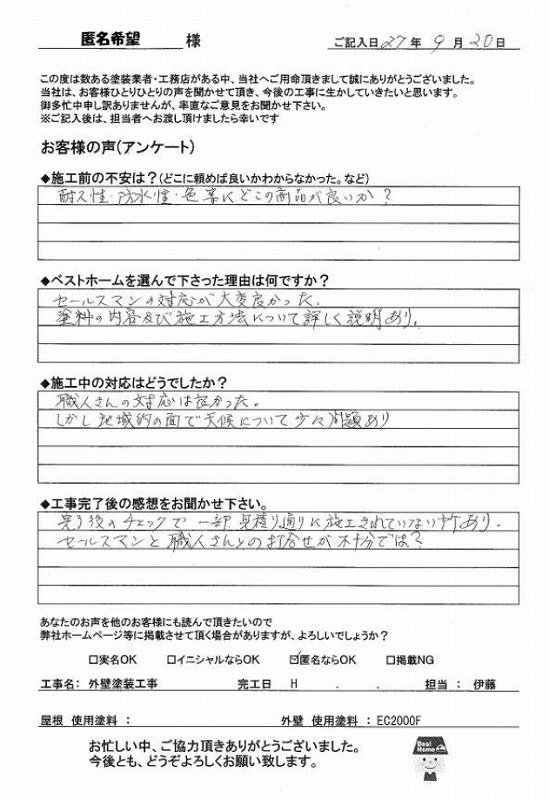 匿名希望 様
ご記入日 27 年 9 月 20 日
この度は数ある塗装業者・工務店がある中、当社へご用命頂きまして誠にありがとうございました。
当社は、お客様ひとりひとりの声を聞かせて頂き、今後の工事に生かしていきたいと思います。
御多忙中申し訳ありませんが、率直なご意見をお聞かせ下さい。
※ご記入後は、担当者へお渡し頂けましたら幸いです
お客様の声(アンケート)
◆施工前の不安は?(どこに頼めば良いかわからなかった。など)
耐久性・防水性・色等にどこの商品が良いか?
◆ベストホームを選んで下さった理由は何ですか?
セールスマンの対応が大変良かった.
塗料の内容及び施工方法について詳しく説明あり.
◆施工中の対応はどうでしたか?
職人さんの対応は良かった。
しかし地域的の面で天候について少々問題あり
◆工事完了後の感想をお聞かせ下さい。
完了後のチェックで一部見積り通りに施工されていない所あり.
セールスマンと職人さんとの打合せが不十分では?
あなたのお声を他のお客様にも読んで頂きたいので
弊社ホームページ等に掲載させて頂く場合がありますが、よろしいでしょうか?
□実名OK □イニシャルならOK ☑匿名ならOK □掲載NG
工事名: 外壁塗装工事 完工日 H . . 担当 : 伊藤
屋根 使用塗料 : 外壁 使用塗料 : EC2000F
お忙しい中、ご協力頂きありがとうございました。
今後とも、どうぞよろしくお願い致します。
Best Home